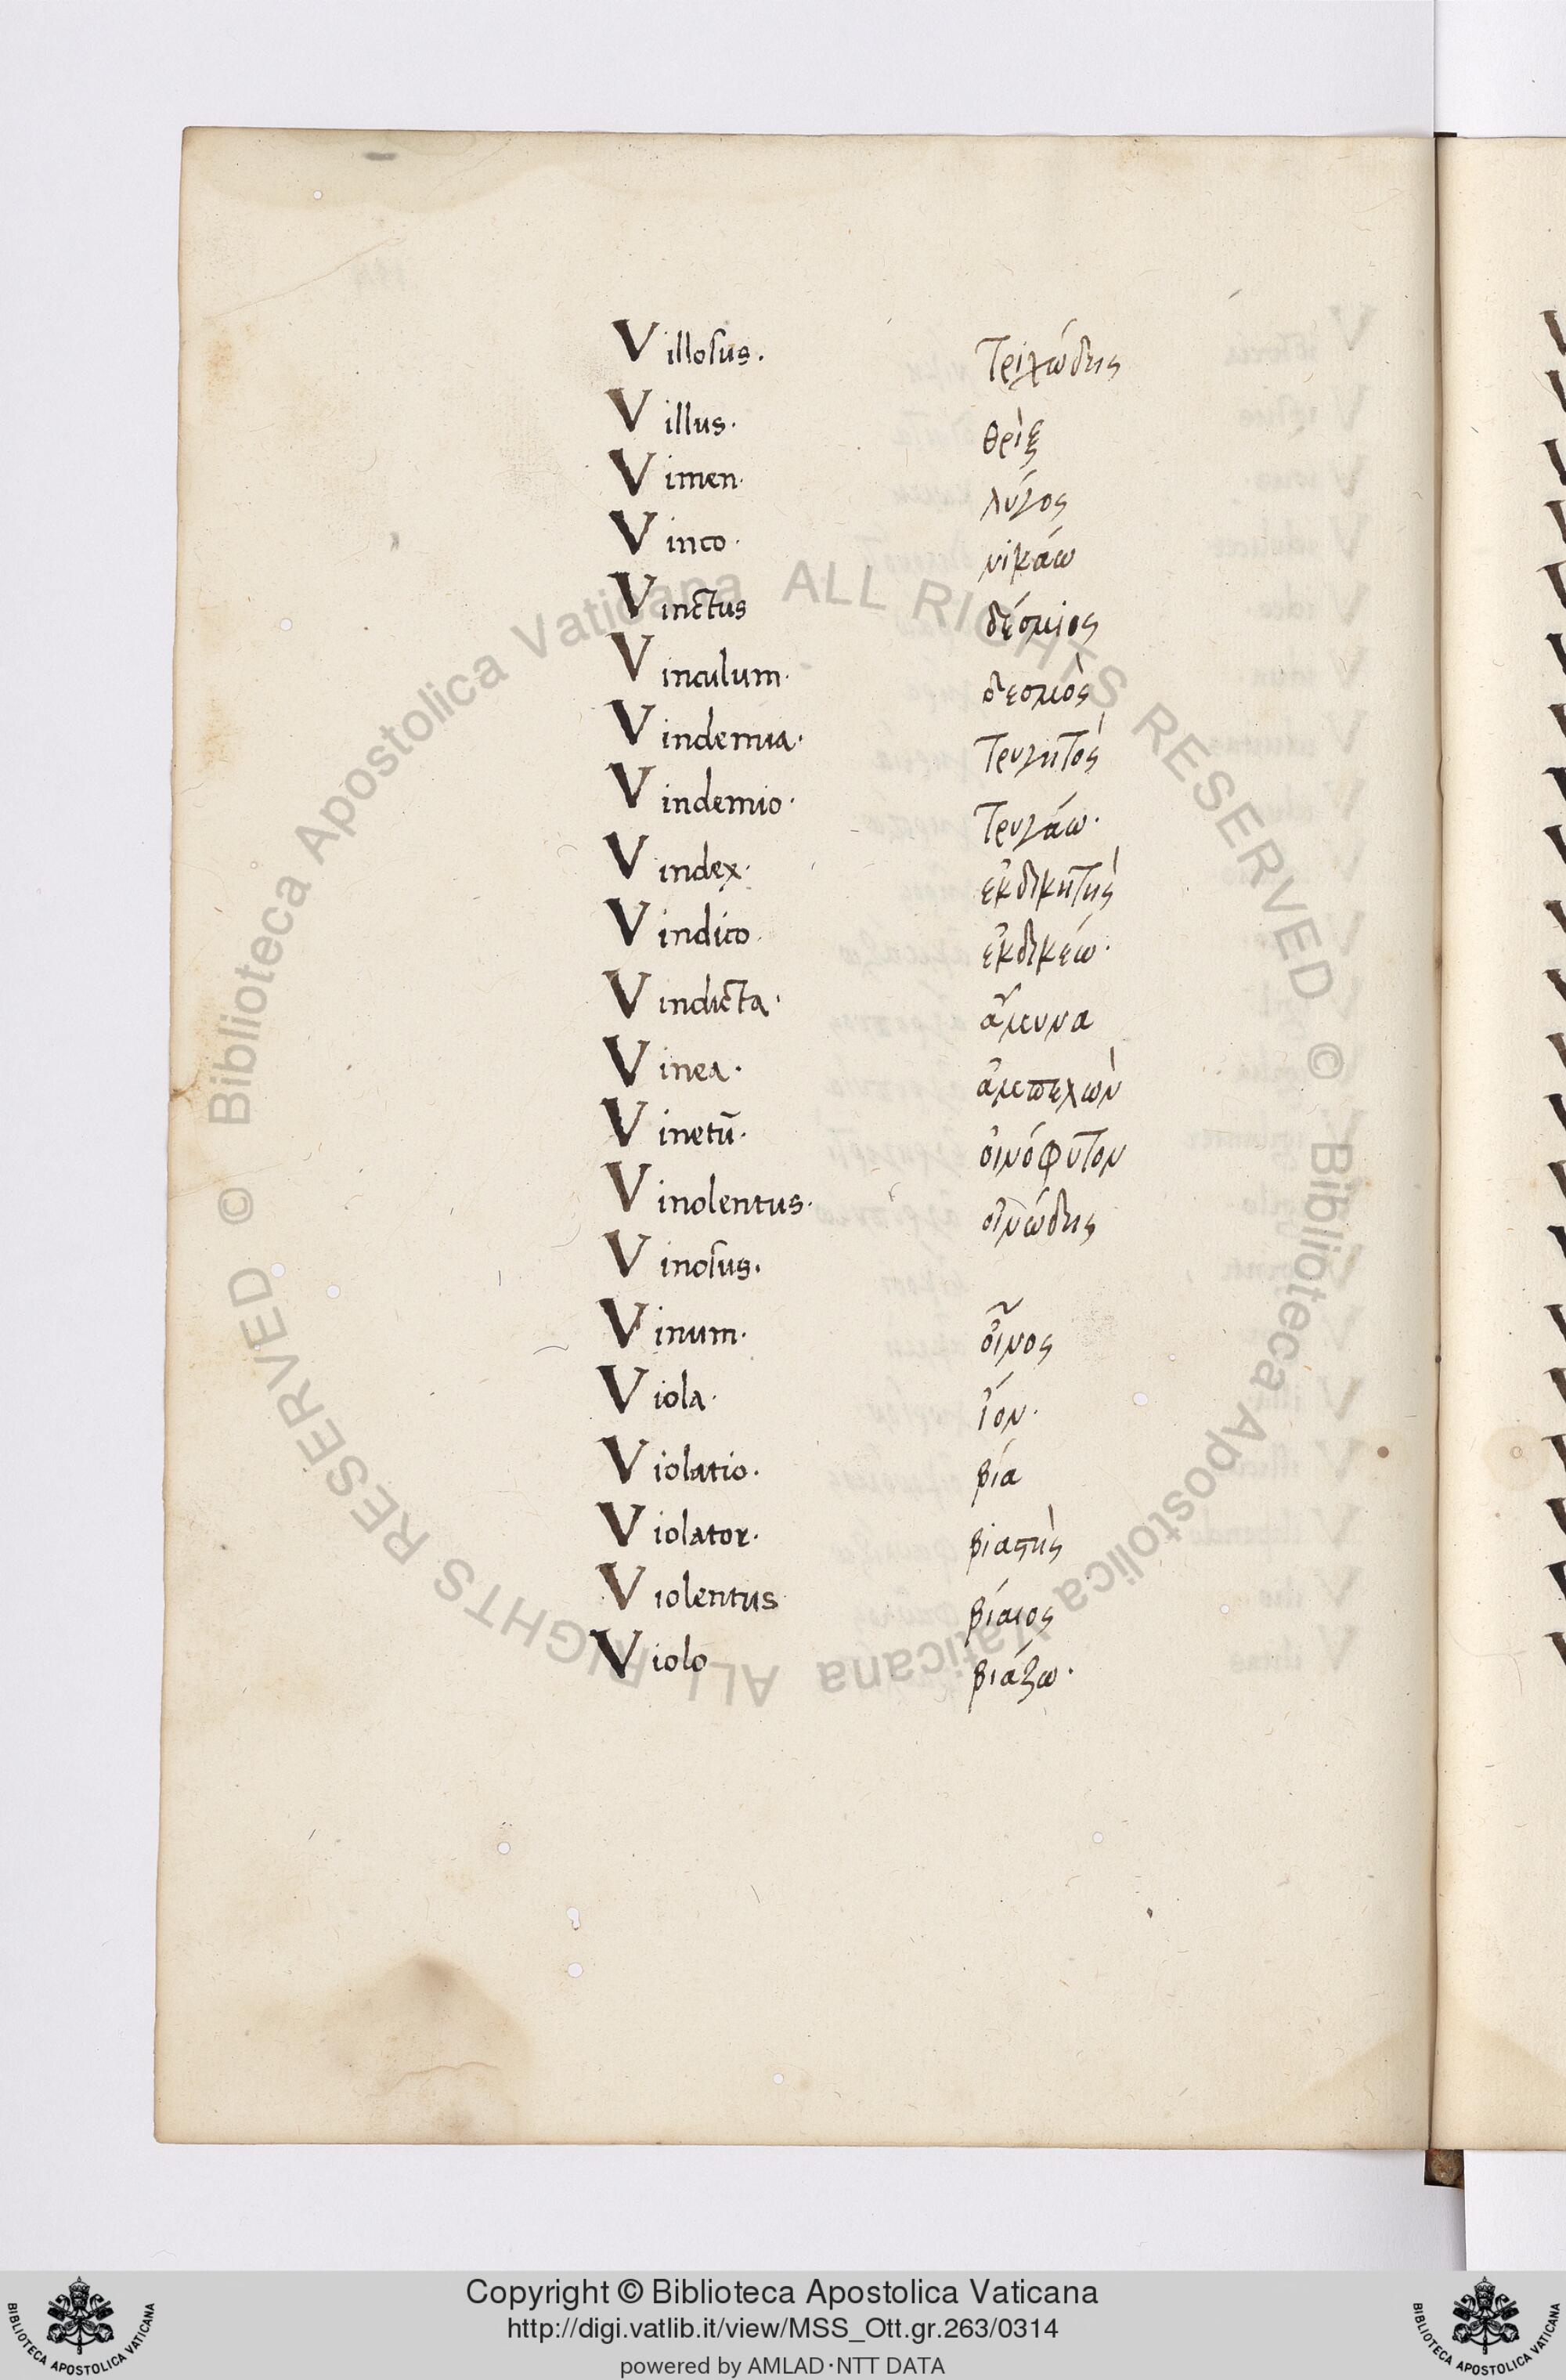 Villosus. τριχώδης
Villus. θρὶξ
Vimen. λύγος
Vinco. νικάω
Vinctus δέσμιος
Vinculum. δεσμὸς
Vindemia. τρυγητὸς
Vindemio. τρυγάω.
Vindex. ἐκδικητὴς
Vindico. ἐκδικέω.
Vindicta. ἄμυνα
Vinea. ἀμπελὼν
Vinetū. οἰνόφυτον
Vinolentus. οἰνώδης
Vinosus.
Vinum. οἶνος
Viola. ἴον.
Violatio. βία
Violator. βιαστὴς
Violentus βίαιος
Violo βιάζω.
© Biblioteca Apostolica Vaticana ALL RIGHTS RESERVED
© Biblioteca Apostolica Vaticana ALL RIGHTS RESERVED
Copyright © Biblioteca Apostolica Vaticana
http://digi.vatlib.it/view/MSS_Ott.gr.263/0314
powered by AMLAD·NTT DATA
BIBLIOTECA APOSTOLICA VATICANA
BIBLIOTECA APOSTOLICA VATICANA